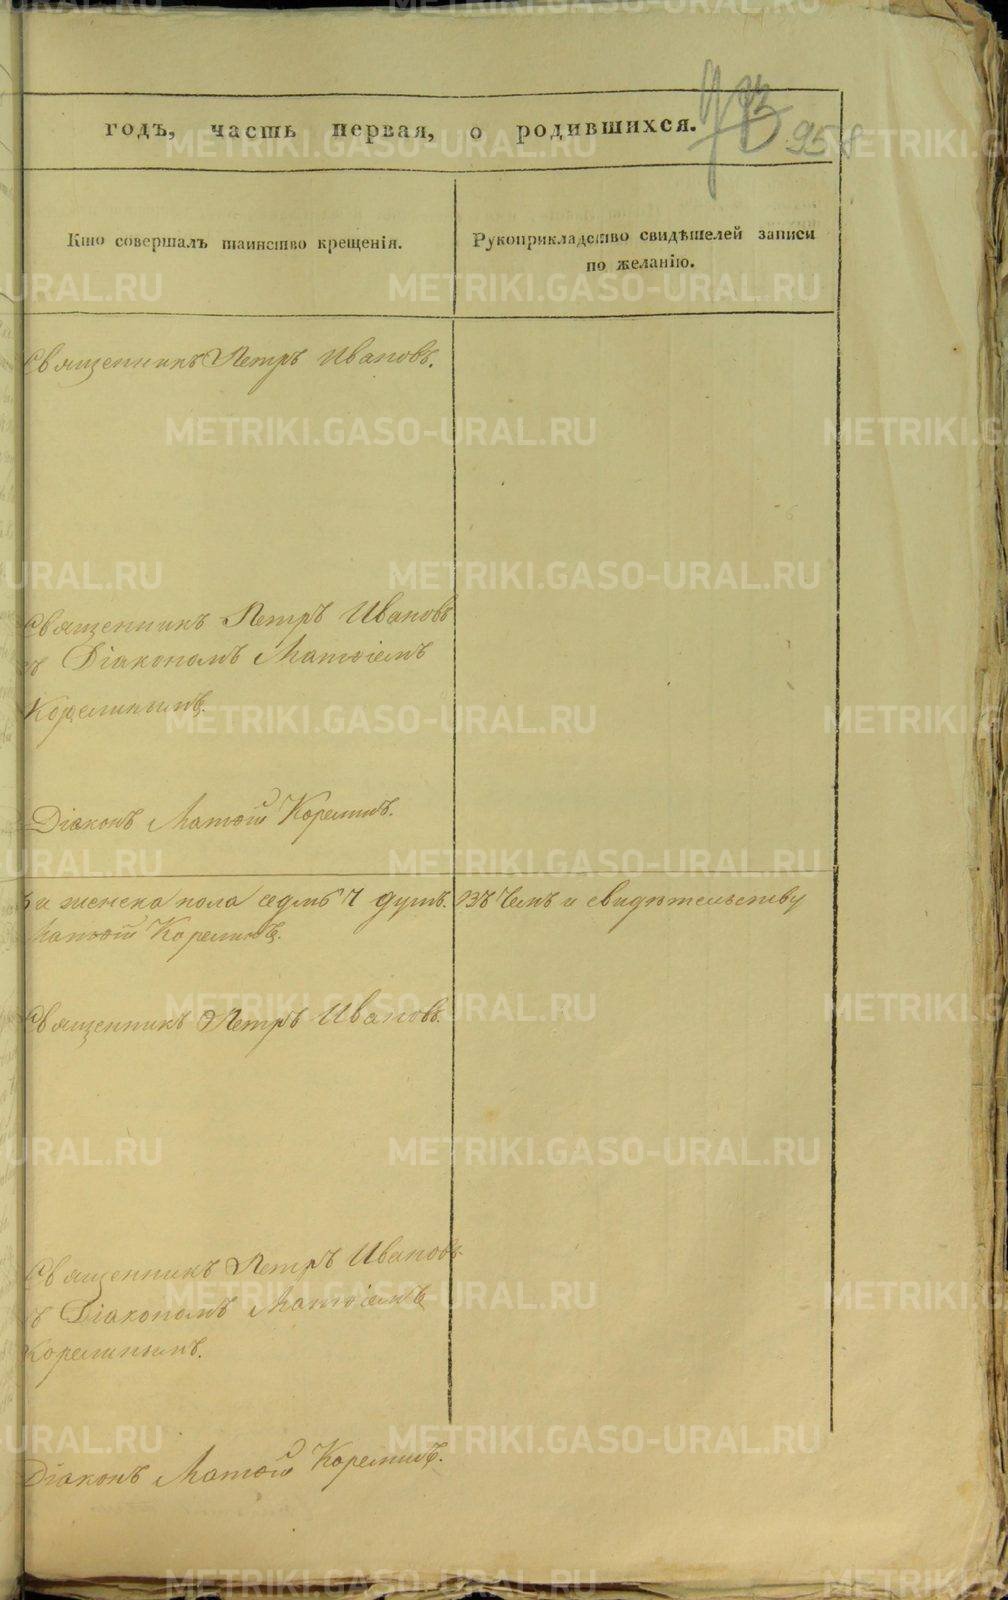 годъ, часть первая, о родившихся.
958
Кто совершалъ таинство крещенія.
Рукоприкладство свидѣтелей записи
по желанію.
Священникъ Петръ Ивановъ.
Священникъ Петръ Ивановъ
съ Діакономъ Матѳіемъ
Корелинымъ.
Діаконъ Матѳій Корелинъ.
и женска пола седмь 7 душъ. Въ чемъ и свидѣтельству
Матѳій Корелинъ.
Священникъ Петръ Ивановъ.
Священникъ Петръ Ивановъ
съ Діакономъ Матѳіемъ
Корелинымъ.
Діаконъ Матѳій Корелинъ.
METRIKI.GASO-URAL.RU